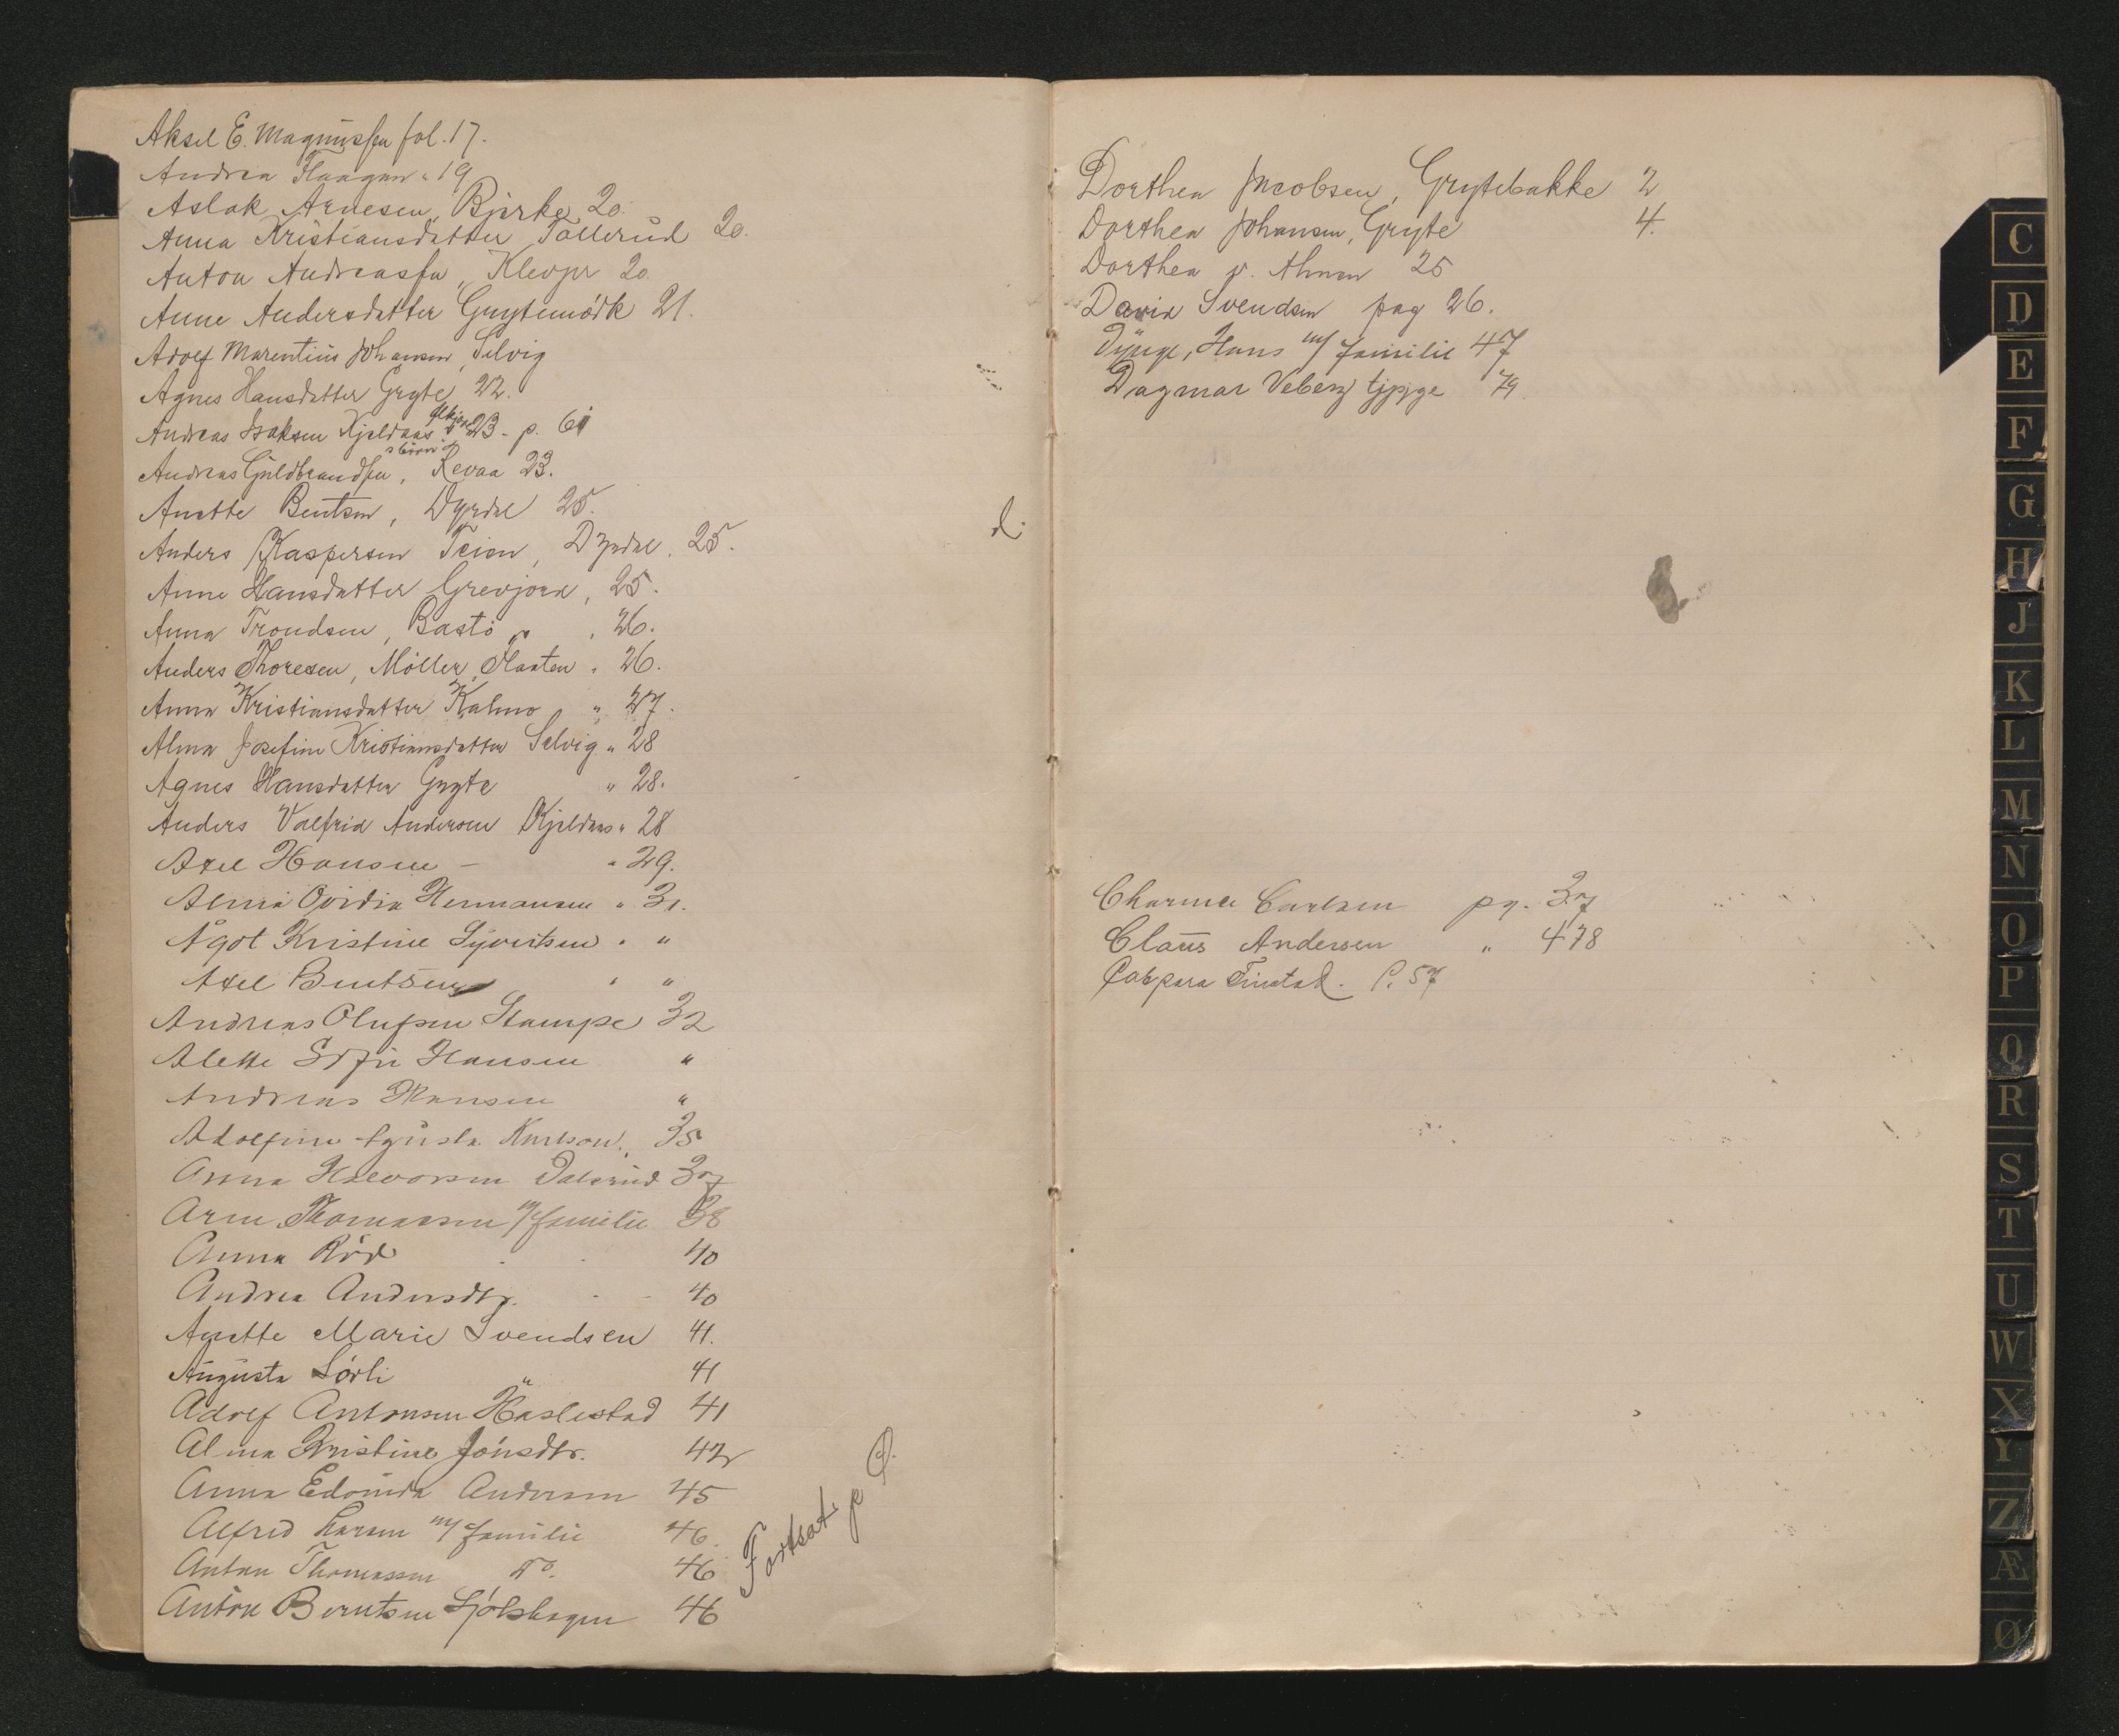 Aksel E. Magnussen fol. 17.
Andrea Haagen " 19
Aslak Arnesen, Bjerke 20.
Anna Kristiansdatter Tollerud 20.
Anton Andreassen, Klevjer 20.
Anne Andersdatter Grytemörk 21.
Adolf Marentius Johansen, Selvig
Agnes Hansdatter Gryte 22.
Andreas Isaksen Kjeldaas 23 - p. 61
Andreas Guldbrandsen, Revaa 23.
Anette Bentsen, Dyrdal 25.
Anders Kaspersen Teien, Dyrdal. 25.
Anne Hansdatter Grevjord, 25.
Anna Trondsen, Bastö " . 26.
Anders Thoresen, Möller, Plaaten . 26.
Anna Kristiansdatter Kalmo " 27.
Alma Josefine Kristiansdatter Selvig " 28
Agnes Hansdatter Gryte " 28.
Anders Valfrid Andersen Kjeldaas " 28
Axel Hansen - " 29.
Alma Ovidia Hermansen " 31.
Ågot Kristine Syvertsen " "
Axel Bentsen " "
Andreas Olufsen Stampe 32
Alette Sofie Hansen "
Andreas Hansen "
Adolfine Agusta Karlson. 35
Anna Halvorsen Dalsrud 37
Arne Thomassen m/ familie 38
Anna Röd 40
Andrea Andersdtr. 40
Anette Marie Svendsen 41.
Augusta Sörli 41
Adolf Antonsen Haslestad 41
Alma Kristine Jónsdtr. 42
Anna Edovida Andersen 45
Alfred Larsen m/ familie 46.
Anton Thomassen do. 46
Anton Berntsen Sjölshagen 46
Fortsat p Q.
d.
Dorthea Jacobsen, Grytebakke 2
Dorthea Johansen, Gryte 4.
Dorthea v. Ahnen 25
David Svendsen pag 26.
Dynge, Hans m/ familie 47
Dagmar Veberg 79
Carlsen pg. 37
Claus Andersen " 478
Caspara Finstad. P. 57
C
D
E
F
G
H
J
K
L
M
N
O
P
Q
R
S
T
U
W
X
Y
Z
Æ
Ø